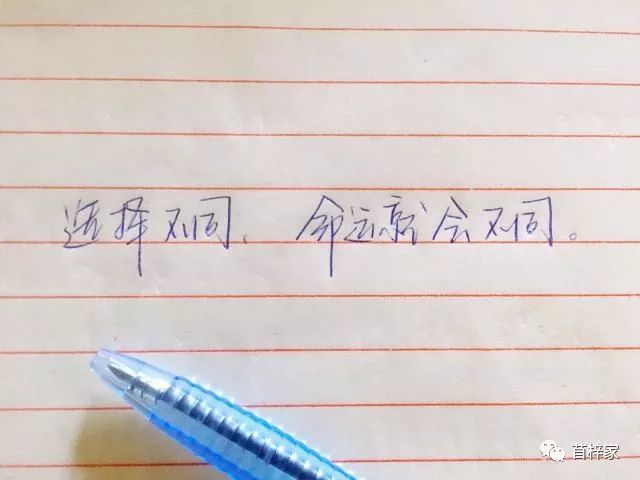 选择不同、命运就会不同。
苜梓家